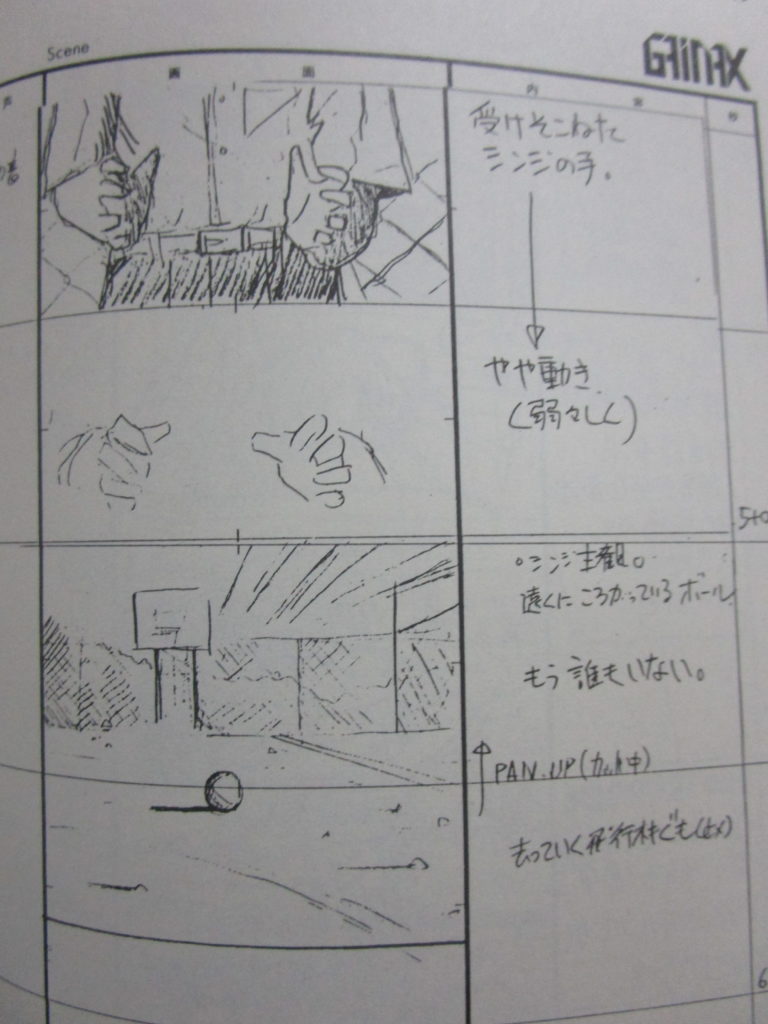 Scene
GAINAX
声
画 面
内 容
秒
受けそこねた
シンジの手。
やや動き
(弱々しく)
5+0
シンジ主観。
遠くにころがっているボール
もう誰もいない。
PAN.UP(カット中)
去っていく飛行機ぐも
6